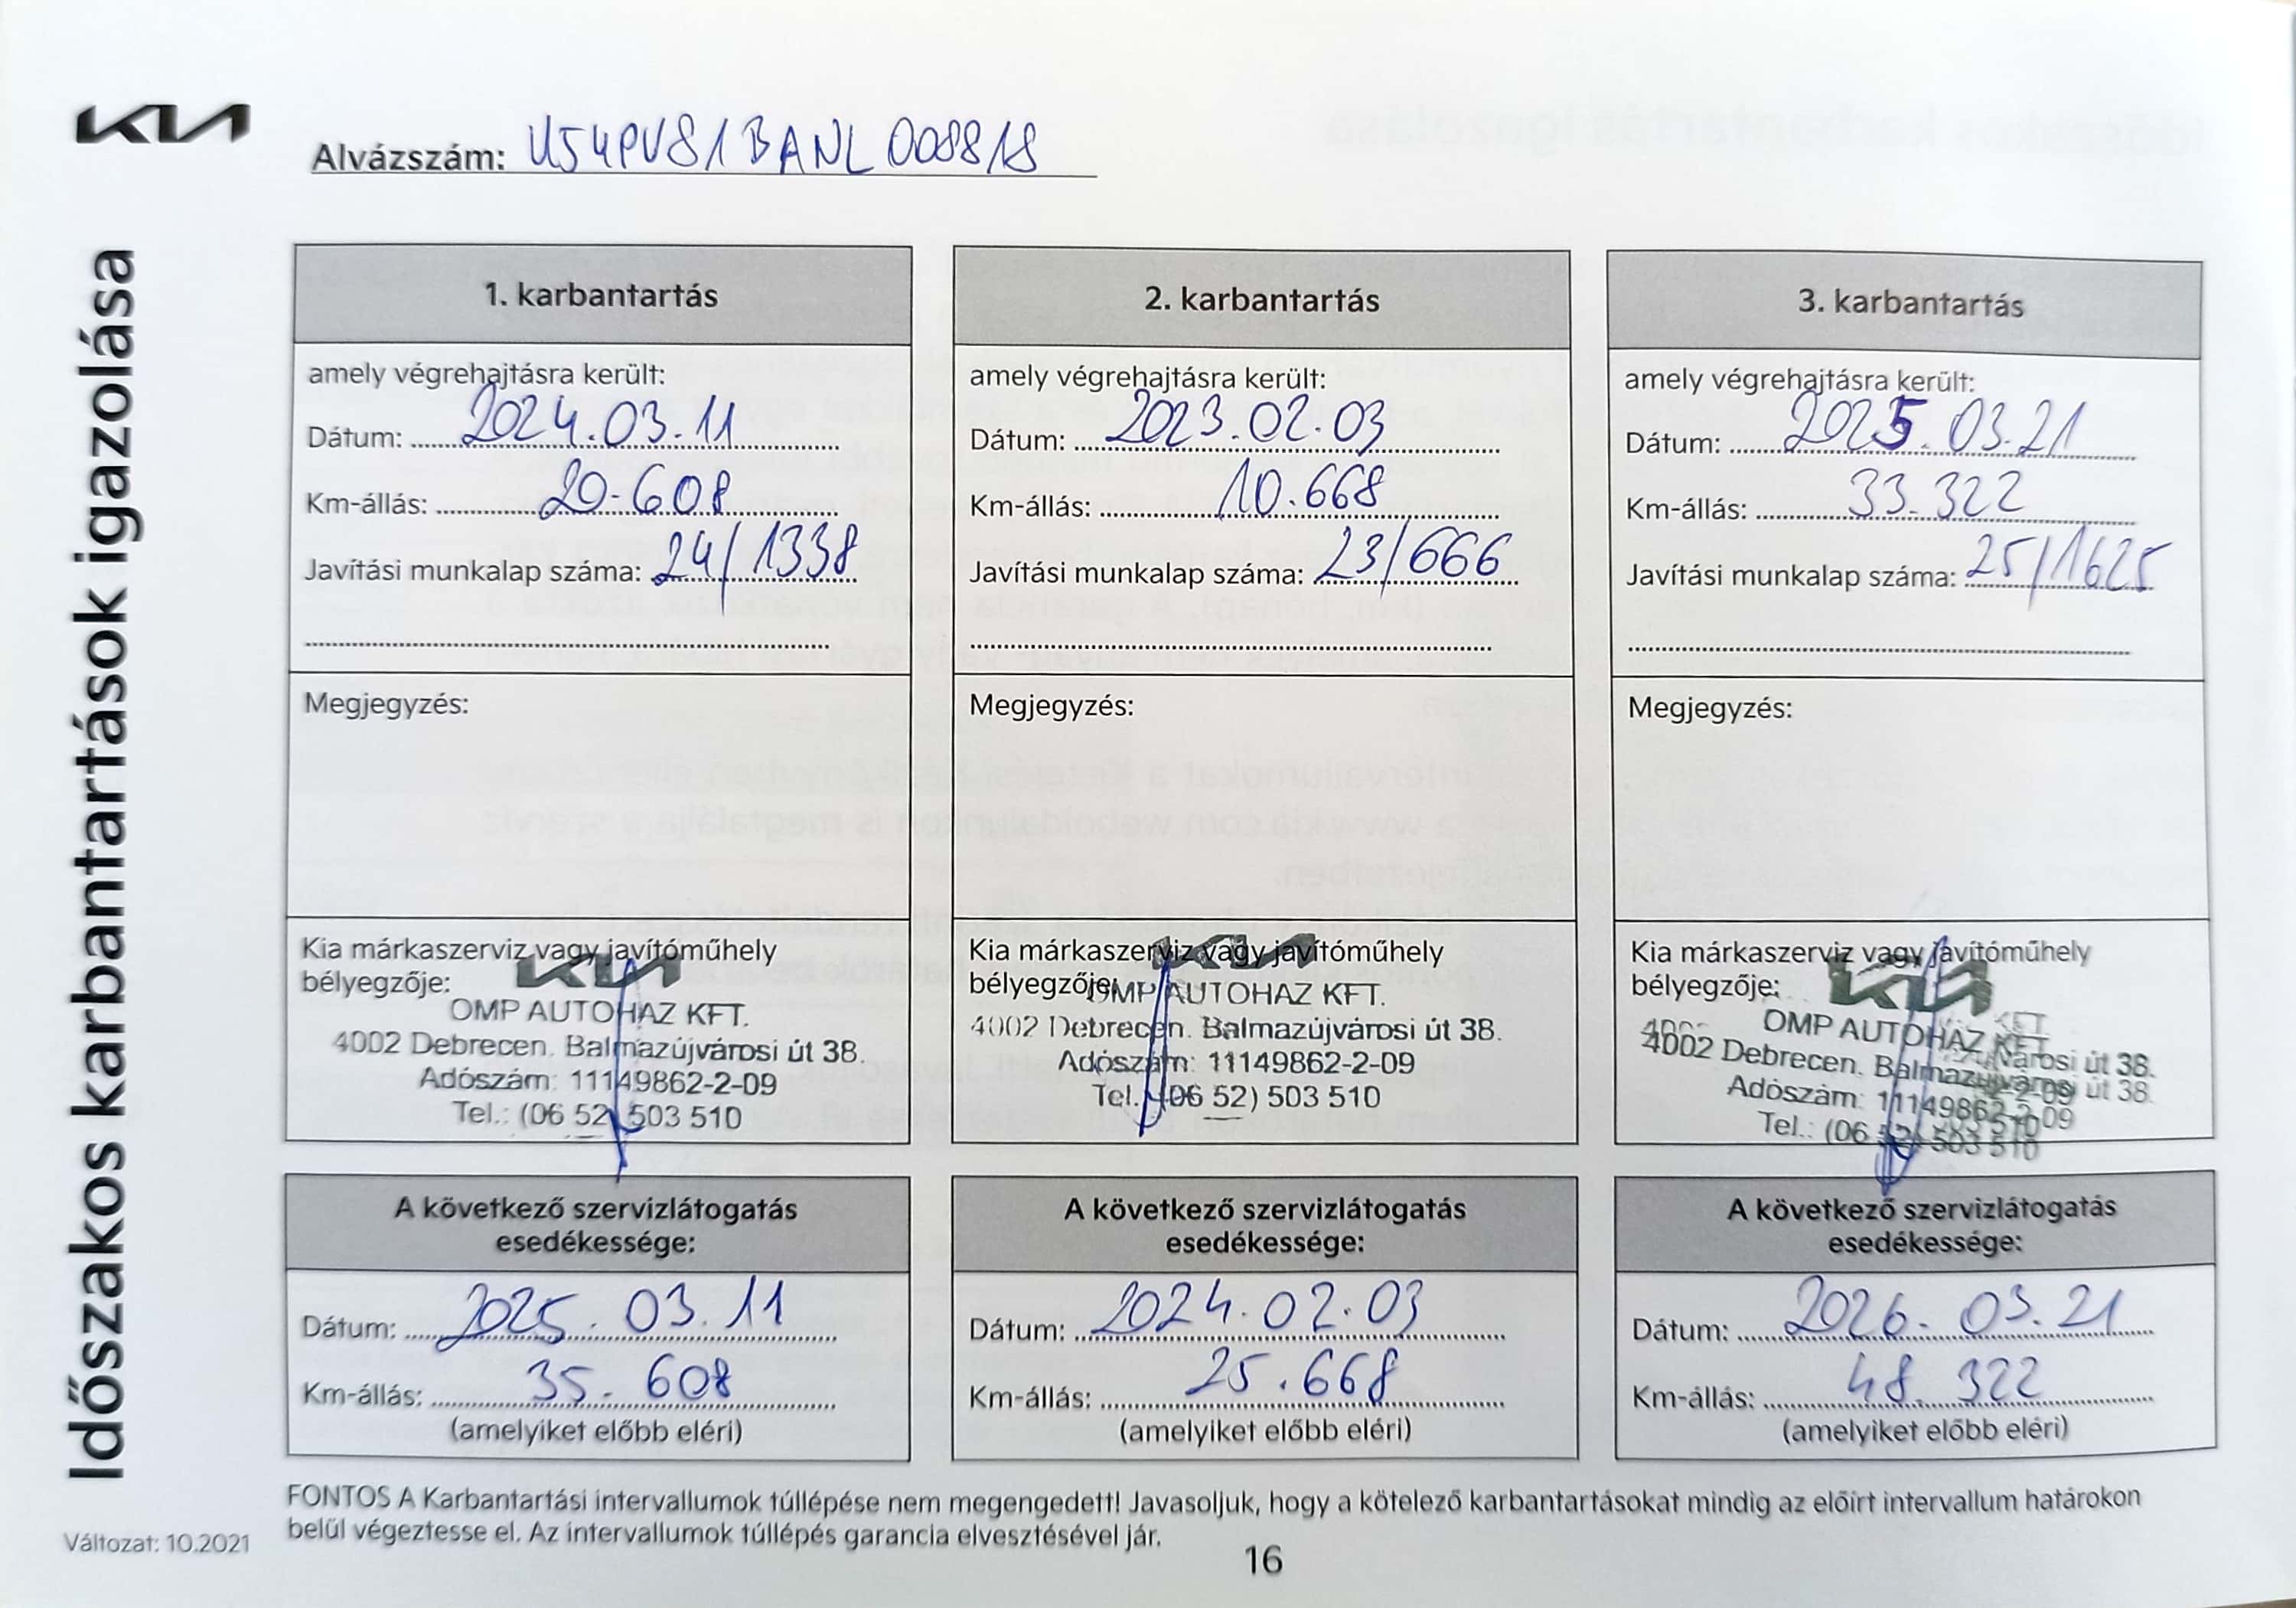 KIA
Alvázszám: U54PV81BANL008818
Időszakos karbantartások igazolása
1. karbantartás
amely végrehajtásra került:
Dátum: 2024.03.11
Km-állás: 20.608
Javítási munkalap száma: 24/1338
Megjegyzés:
Kia márkaszerviz vagy javítóműhely
bélyegzője:
KIA
OMP AUTOHAZ KFT.
4002 Debrecen. Balmazújvárosi út 38.
Adószám: 11149862-2-09
Tel.: (06 52) 503 510
A következő szervizlátogatás
esedékessége:
Dátum: 2025.03.11
Km-állás: 35.608
(amelyiket előbb eléri)
2. karbantartás
amely végrehajtásra került:
Dátum: 2023.02.03
Km-állás: 10.668
Javítási munkalap száma: 23/666
Megjegyzés:
Kia márkaszerviz vagy javítóműhely
bélyegzője:
KIA
OMP AUTOHAZ KFT.
4002 Debrecen. Balmazújvárosi út 38.
Adószám: 11149862-2-09
Tel.: (06 52) 503 510
A következő szervizlátogatás
esedékessége:
Dátum: 2024.02.03
Km-állás: 25.668
(amelyiket előbb eléri)
3. karbantartás
amely végrehajtásra került:
Dátum: 2025.03.21
Km-állás: 33.322
Javítási munkalap száma: 25/1625
Megjegyzés:
Kia márkaszerviz vagy javítóműhely
bélyegzője:
KIA
OMP AUTOHAZ KFT.
4002 Debrecen. Balmazújvárosi út 38.
Adószám: 11149862-2-09
Tel.: (06 52) 503 510
A következő szervizlátogatás
esedékessége:
Dátum: 2026.03.21
Km-állás: 48.322
(amelyiket előbb eléri)
FONTOS A Karbantartási intervallumok túllépése nem megengedett! Javasoljuk, hogy a kötelező karbantartásokat mindig az előírt intervallum határokon
belül végeztesse el. Az intervallumok túllépés garancia elvesztésével jár.
Változat: 10.2021
16